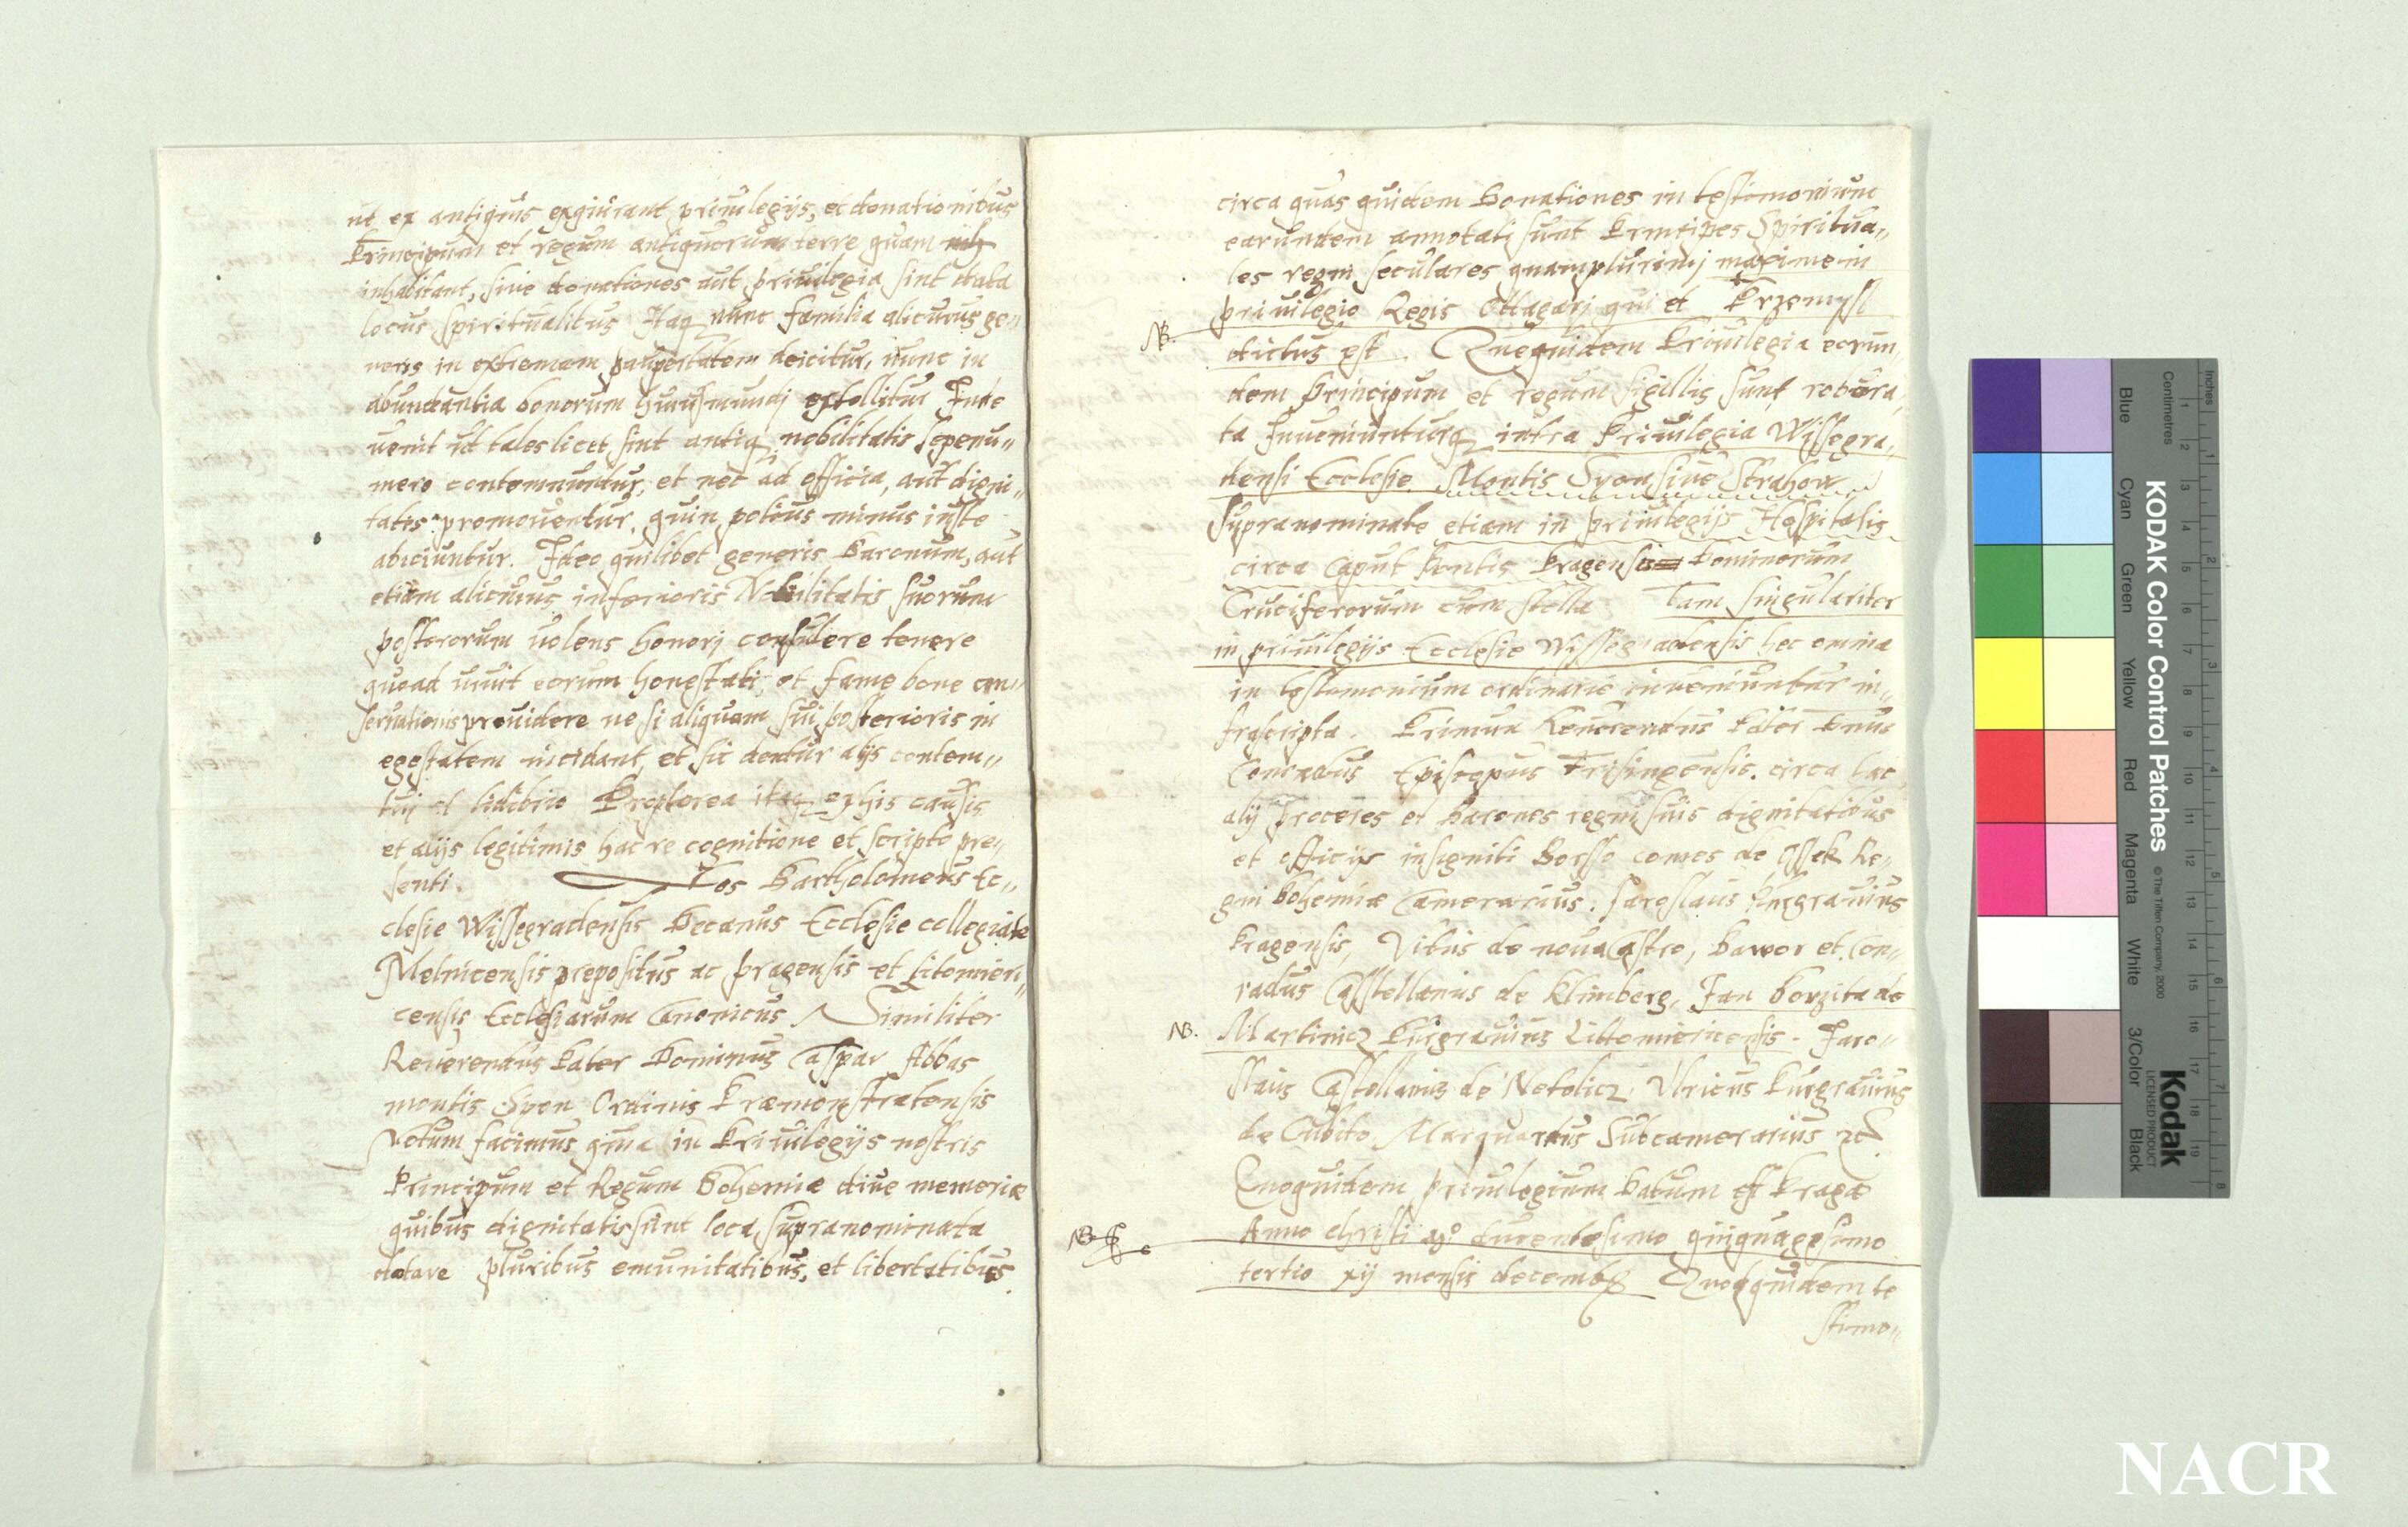 ut ex antiquis exquirant priuilegijs, et donationibus
Principum et regum antiquorum terre quam
inhabitant, siue donationes aut priuilegia sint data
locus spiritualibus Itaq nunc familia alicuius ge„
neris in extremam paupertatem deicitur, nunc in
abundantia bonorum huiusmundi extollitur Inde
uenit ut tales licet sint antiq nobilitatis sepenu„
mero contemnuntur, et nec ad officia, aut digni„
tates promouentur, quin potius minus iuste
abiciuntur. Ideo quilibet generis Baronum, aut
etiam alicuius inferioris Nobilitatis suorum
posterorum uolens honorj consulere tenere
quoad uiuit eorum honestati, et fame bone con„
seruationis prouidere ne si aliquam sui posterioris in
egestatem incidant, et sic dentur alijs contem„
tuj et ludibrio Propterea itaq ex his causis
et alijs legitimis hac re cognitione et scripto pre„
senti. Nos Bartholomeus Ec„
clesie Wissegradensis Decanus Ecclesie collegiate
Melnicensis prepositus ac pragensis et Litomieri„
censis Ecclesiarum Canonicus Similiter
Reuerendus Pater Dominus Caspar Abbas
montis Syon Ordinis Præmonstratensis
Notum facimus quia in Priuilegijs nostris
Principum et Regum Bohemiæ diue memoriæ
quibus dignitatis sunt loca supranominata
dotare pluribus emunitatibus, et libertatibus.
circa quas quidem Donationes in testimonium
earundem annotati sunt Principes Spiritua„
les regni seculares quamplurimj maxime in
priuilegio Regis Ottagarj qui et Przemysl
NB.
dictus est Quequidem Priuilegia eorun„
dem Principum et regum sigillis sunt robora„
ta Inueniunturq intra Priuilegia Wissegra„
densi Ecclesie Montis Syon siue Strahow
supranominate etiam in priuilegijs Hospitalis
circa Caput Pontis Pragensis Dominorum
Cruciferorum cum stella Tam singulariter
in priuilegijs Ecclesie Wissegradensis hec omnia
in testimonium ordinarie inueniuntur in„
frascripta. Primum Reuerendus Pater Dnus
Conradus Episcopus Frisingensis. circa hac
alij Proceres et Barones regni suis dignitatibus
et officijs insigniti Borsso comes de Ossek Re„
gni bohemiæ Camerarius. Jaroslaus Purgrauius
Pragensis, Vitus de noua Castro, Bawor et Con„
radus Castellanus de Klimberg, Jan Borzita de
NB. Martinicz Purgrauius Littomiericensis. Jaro„
slaus Castellanus de Netolicz Vlricus Purgrauius
de Cubito Marquardus Subcamerarius
Quoquidem priuilegium Datum est Pragæ
NB
Anno christi mo ducentesimo quiquagesimo
tertio xij mensis decemb Quodquidem te
stimo„
KODAK Color Control Patches
© The Tiffen Company, 2000
Kodak
LICENSED PRODUCT
Inches
Centimetres
Blue
Cyan
Green
Yellow
Red
Magenta
White
3/Color
Black
NACR